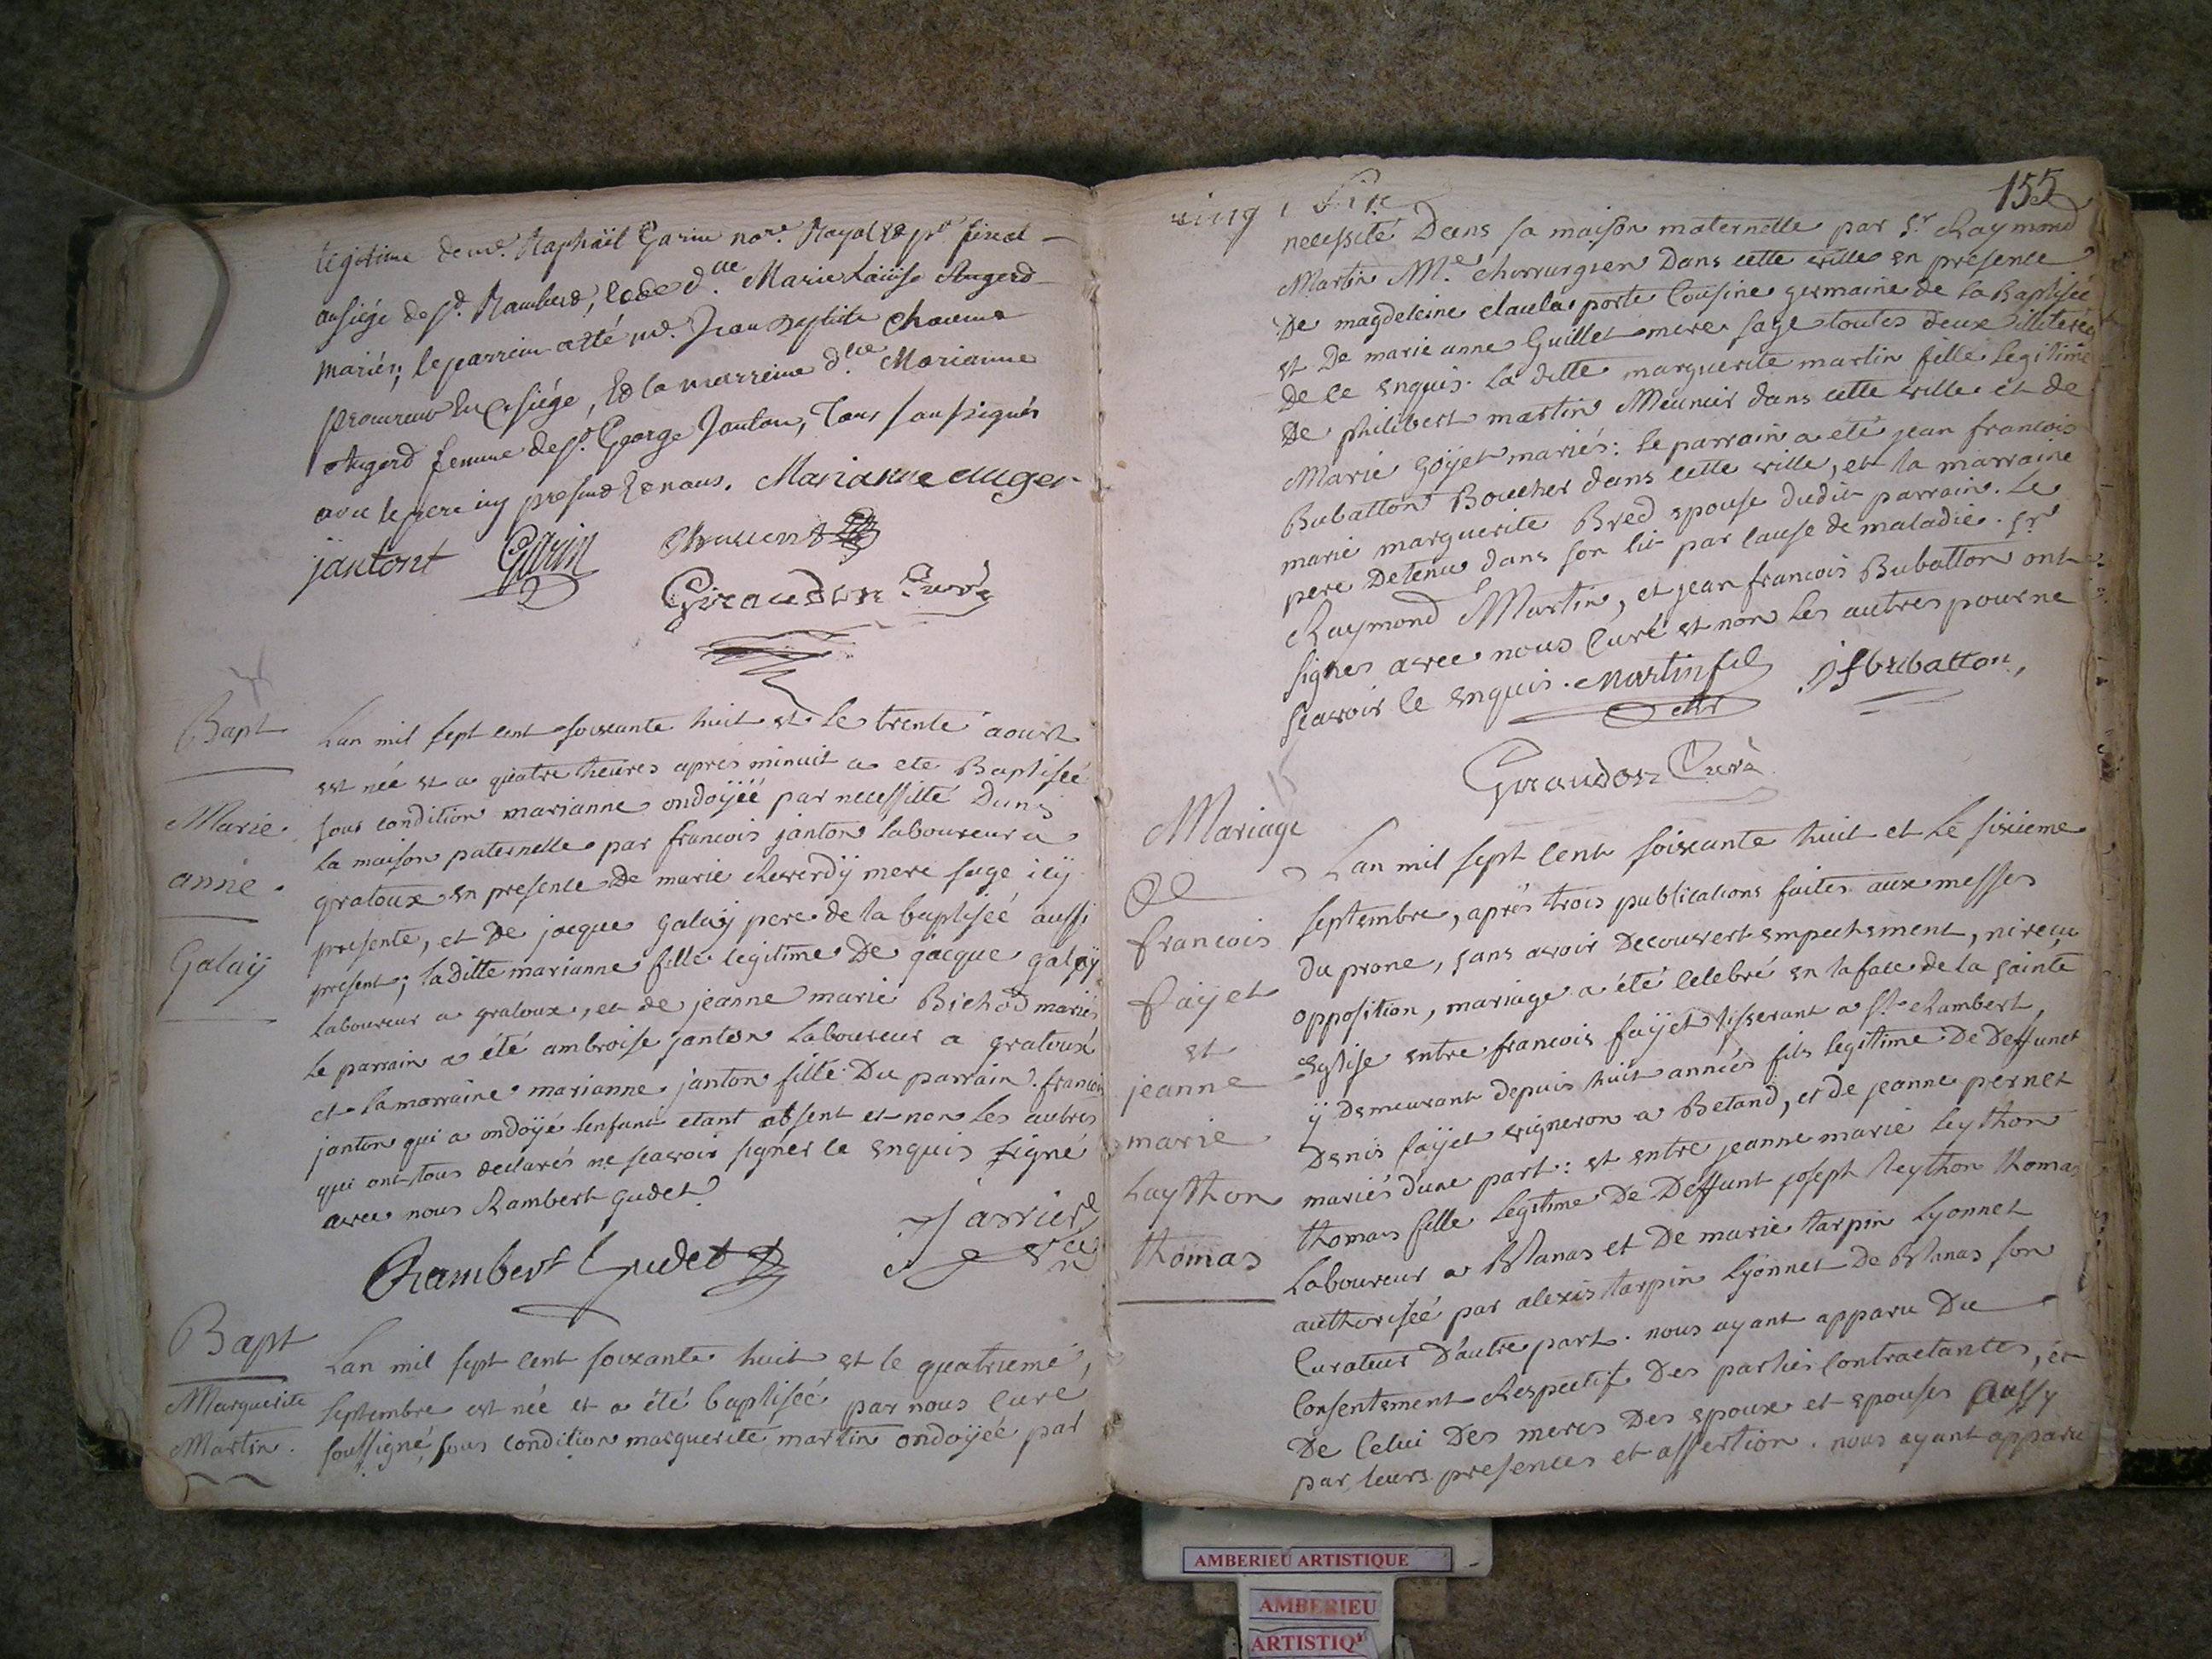 legitime de me. Raphaël Garin nore. Royal & pr. fiscal
au siége de st. Rambert, & de dlle. Marie Loüise Augerd
mariés; le parrein a été me. Jean Baptiste Chaume
procureur au siége, & la marreine dlle. Marianne
Augerd femme de sr. George Janton, Tous soussignés
avec le pere icy present & nous. Marianne auger
jantont Garin
Giraudon Curé
Bapt
Marie
anne
Galaÿ
Lan mil sept cent soixante huit et le trente aoust
est née et a quatre heures aprés minuit a ete Baptiseé
sous condition marianne ondoÿéé par necessitté Dans
la maison paternelle par francois janton laboureur a
gratoux en presence De marie Reverdÿ mere sage icÿ
presente, et De jacque galaÿ pere de la baptiseé aussi
present; laditte marianne fille legitime De jacque galaÿ
laboureur a gratoux, et de jeanne marie Bichod mariés
le parrain a été ambroise janton laboureur a gratoux
et la marraine marianne janton fille Du parrain. francois
janton qui a ondoÿé lenfant etant absent et non les autres
qui ont tous declarés ne scavoir signer ce enquis signé
avec nous Rambert gudet
Rambert Gudet
Jarrier
vic
Bapt
Marguerite
Martin.
Lan mil sept cent soixante huit et le quatrieme
septembre est née et a été baptiseé par nous curé
soussigné, sous condition marguerite martin ondoÿéé par
155
vingt Six
necessité Dans sa maison maternelle par Sr. Raymond
Martin Me. chirurgien Dans cette ville en presence
De magdeleine claula porte Cousine germaine de la Baptiseé
et De marie anne Guillet mere sage toutes deux illiterées
De ce enquis. la ditte marguerite martin fille legitime
De philibert martin Meunier dans cette ville et de
Marie Goÿet mariés: le parrain a été jean francois
Bubatton Boucher dans cette ville, et la marraine
marie marguerite Bred epouse dudit parrain. Le
pere Detenu dans son lit par cause de maladie. Sr.
Raymond Martin, et jean francois Bubatton ont
signes avec nous Curé et non les autres pour ne
scavoir ce enquis. Martin fils jf bubatton,
chr
Giraudon Curé
Mariage
De
francois
faÿet
et
jeanne
marie
Laython
thomas
Lan mil sept cent soixante huit et Le sixieme
septembre, aprés trois publications faites aux messes
du prone, sans avoir Decouvert empechement, ni reçu
opposition, mariage a été celebré en la face de la sainte
Eglise entre francois faÿet tisserant a st. Rambert,
ÿ Demeurant depuis huit années fils legitime De Deffunct
Denis faÿet vigneron a Betand, et de jeanne pernet
mariés dune part: et entre jeanne marie leython
thomas fille legitime De Deffunt joseph leython thomas
laboureur a Blanas et De marie tarpin lyonnet
authoriseé par alexis tarpin lyonnet De Blanas son
Curateur D'autre part. nous ayant apparu Du
Consentement Respectif Des parties Contractantes, et
De Celui Des meres Des epoux et epouses aussy
par leurs presences et assertion. nous ayant apparu
AMBERIEU ARTISTIQUE
AMBERIEU
ARTISTIQ